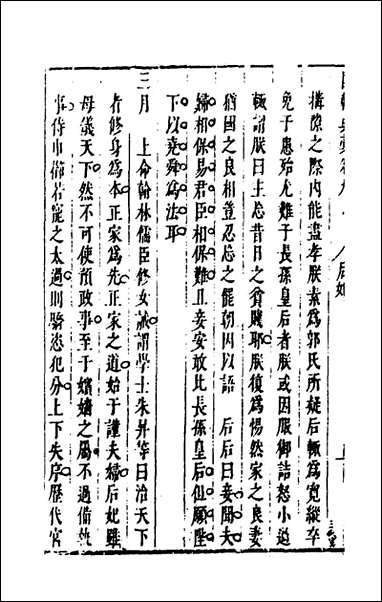 國朝典彙卷九 后妃
搆隙之際內能盡孝朕素為郭氏所疑后輒為寬縱卒
免于患殆尤難于長孫皇后者朕或因服御詰怒小過
輒謂朕曰主忘昔日之貧賤耶朕復為惕然家之良妻
猶國之良相豈忍忘之罷朝因以語 后后曰妾聞夫
婦相保易君臣相保難且妾安敢比長孫皇后但願陛
下以堯舜為法耳
三月 上命翰林儒臣修女誡謂學士朱昇等曰治天下
者修身為本正家為先正家之道始于謹夫婦后妃雖
母儀天下然不可使預政事至于嬪嬙之屬不過備執
事侍巾櫛若寵之太過則驕恣犯分上下失序歷代宮